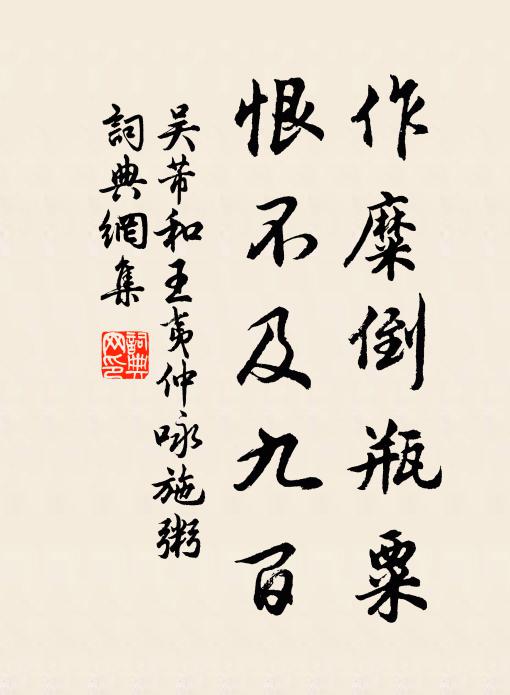 作糜倒瓶粟
恨不及九百
吴芾和王夷仲咏施粥
詞典網集
詞典网印